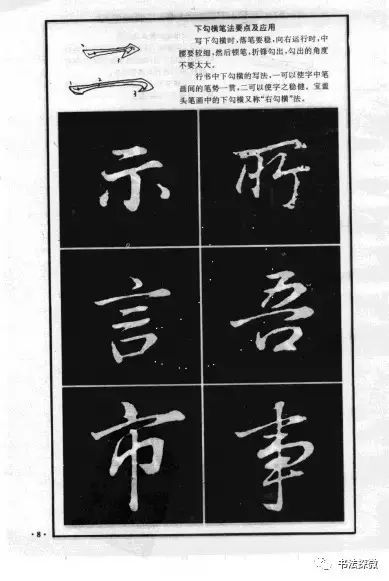 下勾横笔法要点及应用
写下勾横时,落笔要稳,向右运行时,中
腰要较细,然后顿笔,折锋勾出,勾出的角度
不要太大。
行书中下勾横的写法,一可以使字中笔
画间的笔势一贯,二可以使字之稳健。宝盖
头笔画中的下勾横又称“右勾横”法。
示 所
言 吾
市 事
·8·
书法探教